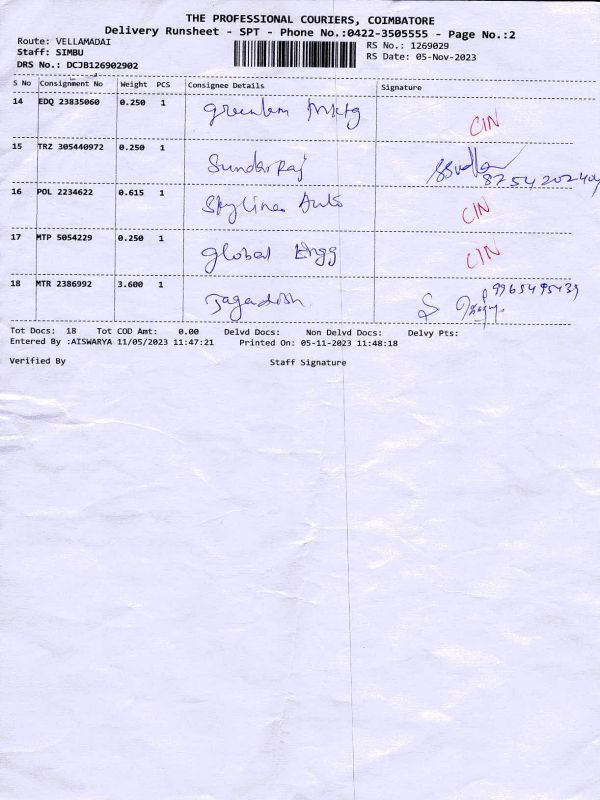 THE PROFESSIONAL COURIERS, COIMBATORE
Delivery Runsheet - SPT - Phone No.:0422-3505555 - Page No.:2
Route: VELLAMADAI
Staff: SIMBU
DRS No.: DCJB126902902
RS No.: 1269029
RS Date: 05-Nov-2023
S No Consignment No Weight PCS Consignee Details Signature
14 EDQ 23835060 0.250 1 CIN
15 TRZ 305440972 0.250 1 SundarRaj
16 POL 2234622 0.615 1 Skylines Auto CIN
17 MTP 5054229 0.250 1 Global Engg CIN
18 MTR 2386992 3.600 1 Jagadish
Tot Docs: 18 Tot COD Amt: 0.00 Delvd Docs: Non Delvd Docs: Delvy Pts:
Entered By :AISWARYA 11/05/2023 11:47:21 Printed On: 05-11-2023 11:48:18
Verified By Staff Signature